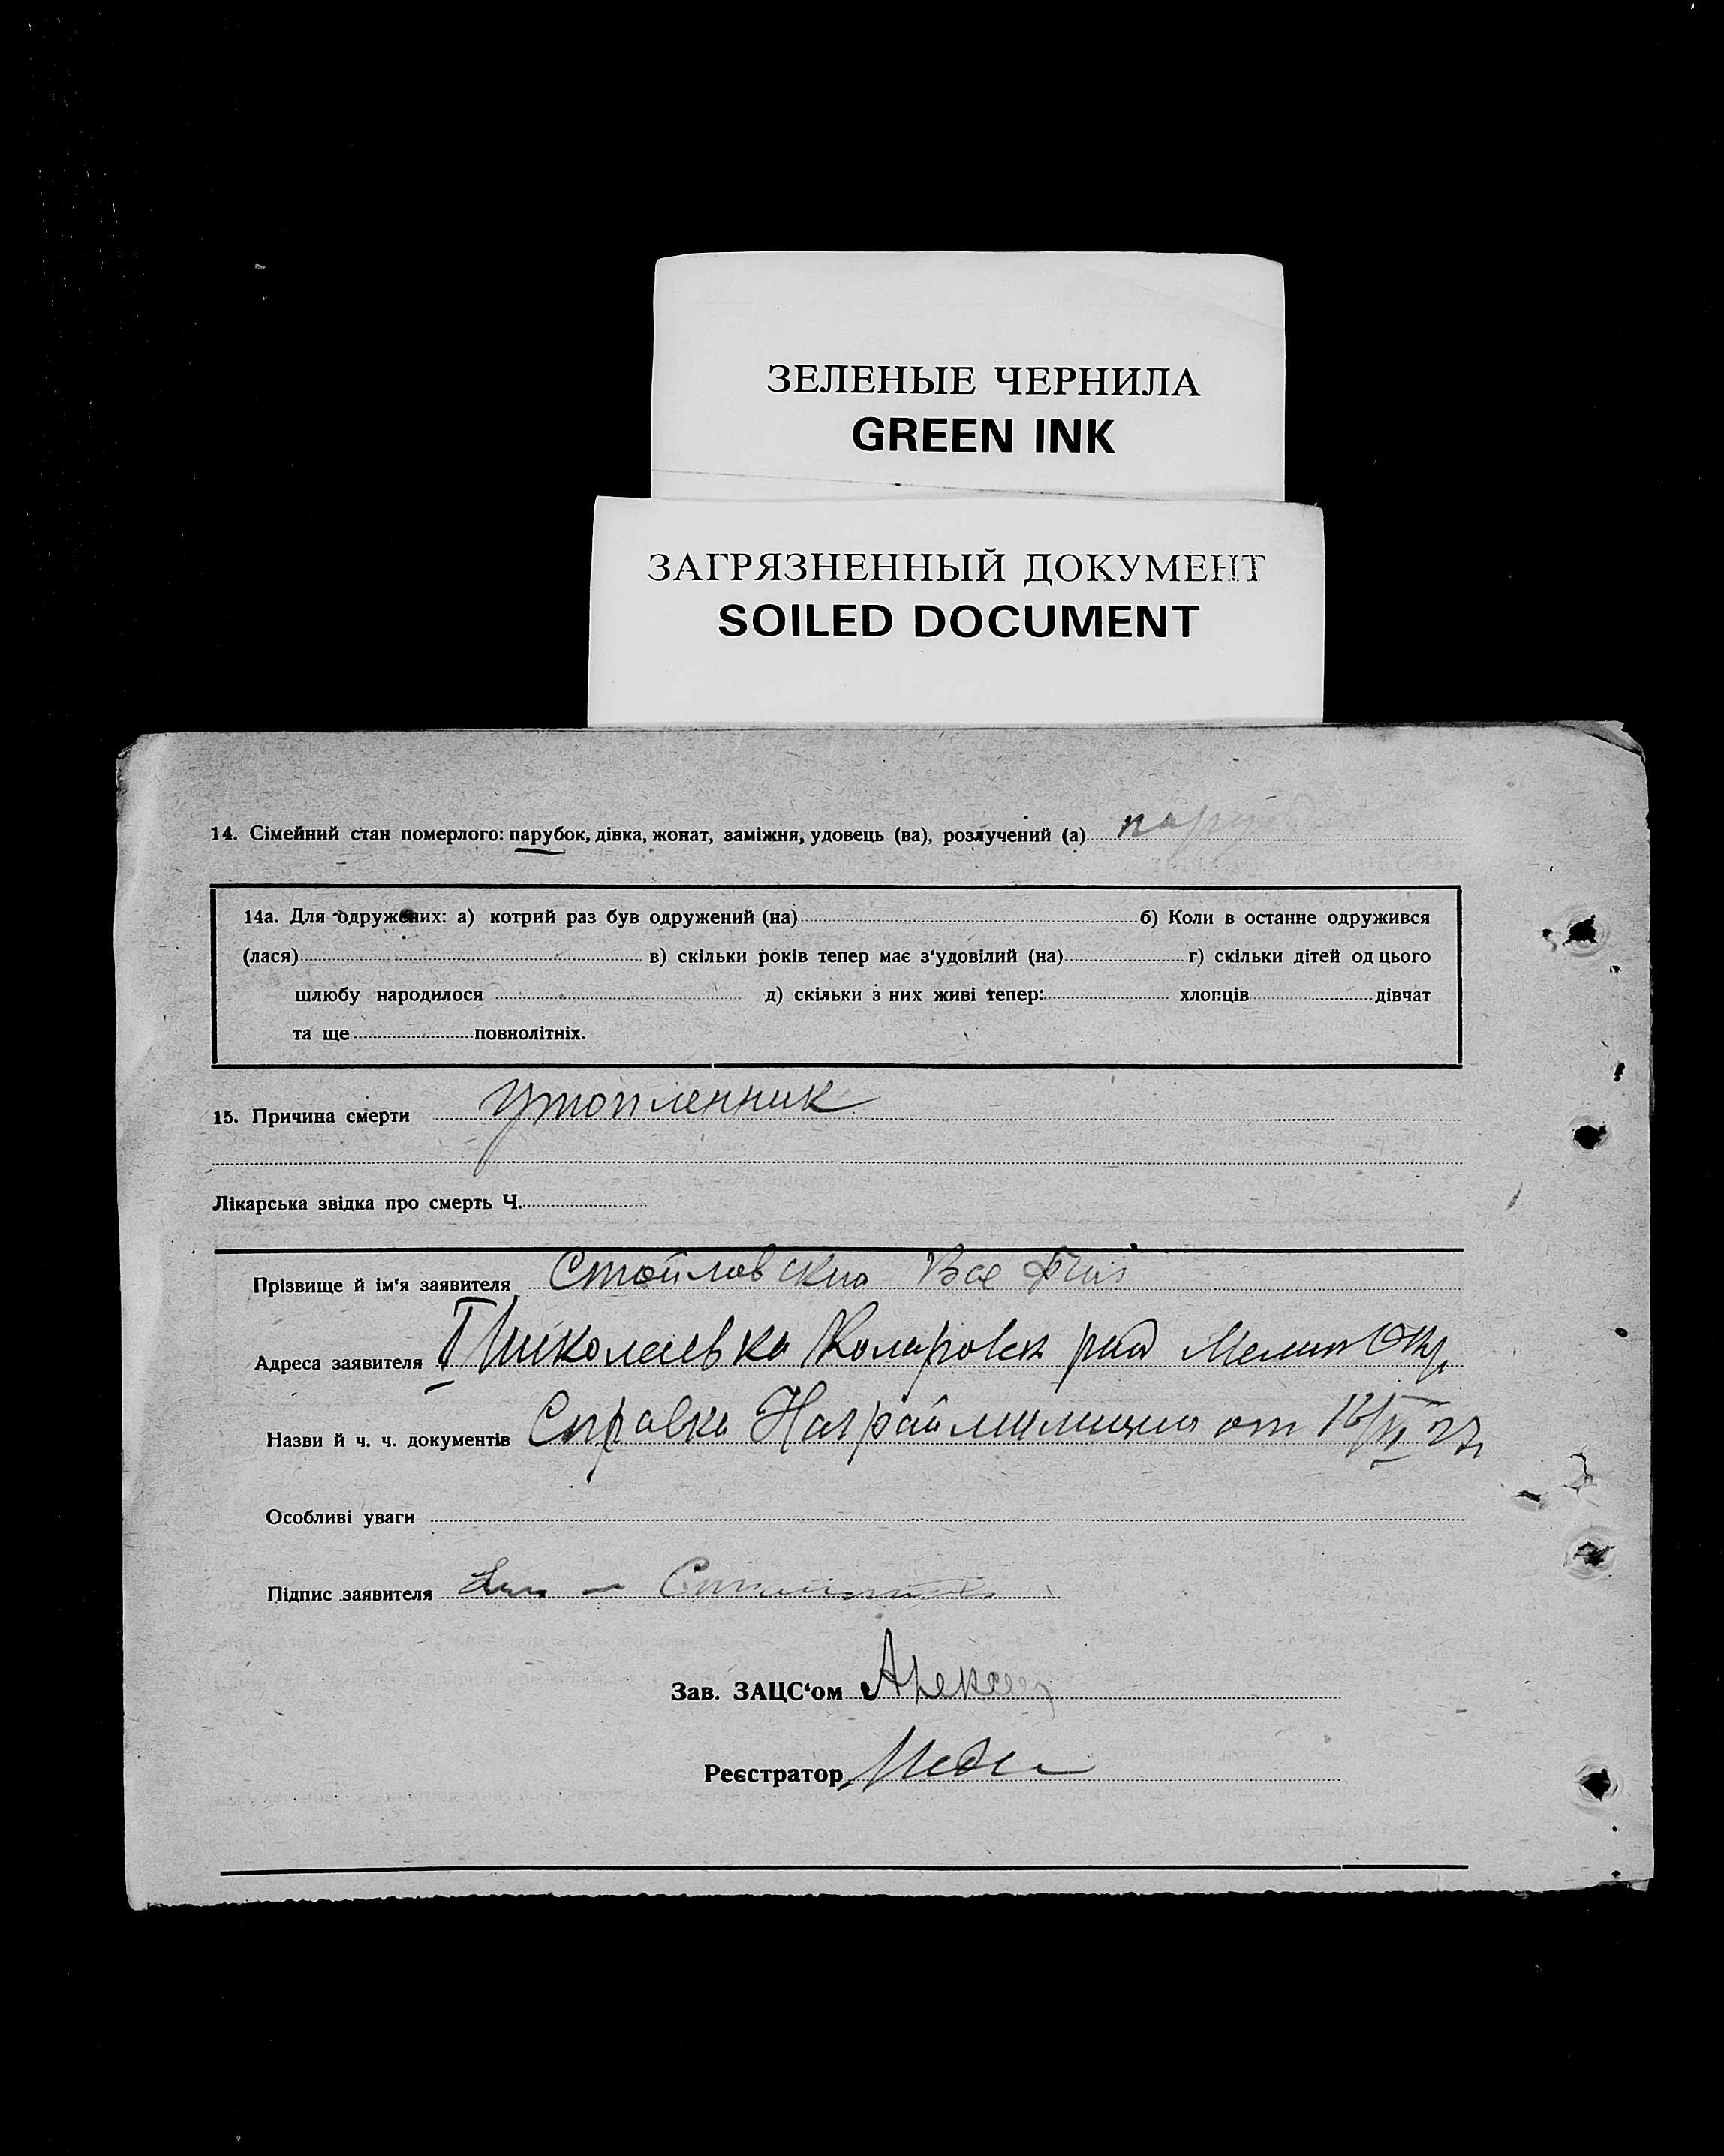 ЗЕЛЕНЫЕ ЧЕРНИЛА
GREEN INK
ЗАГРЯЗНЕННЫЙ ДОКУМЕНТ
SOILED DOCUMENT
14. Сімейний стан померлого: парубок, дівка, жонат, заміжня, удовець (ва), розлучений (а)
14а. Для одружених: а) котрий раз був одружений (на) б) Коли в останне одружився
(лася) в) скільки років тепер має з‘удовілий (на) г) скільки дітей од цього
шлюбу народилося д) скільки з них живі тепер: хлопців дівчат
та ще повнолітніх.
15. Причина смерти утопленник
Лікарська звідка про смерть Ч.
Прізвище й ім‘я заявителя
Адреса заявителя Николаевка Коларовск
Назви й ч. ч. документів Справка от
Особливі уваги
Підпис заявителя
Зав. ЗАЦС‘ом
Реєстратор